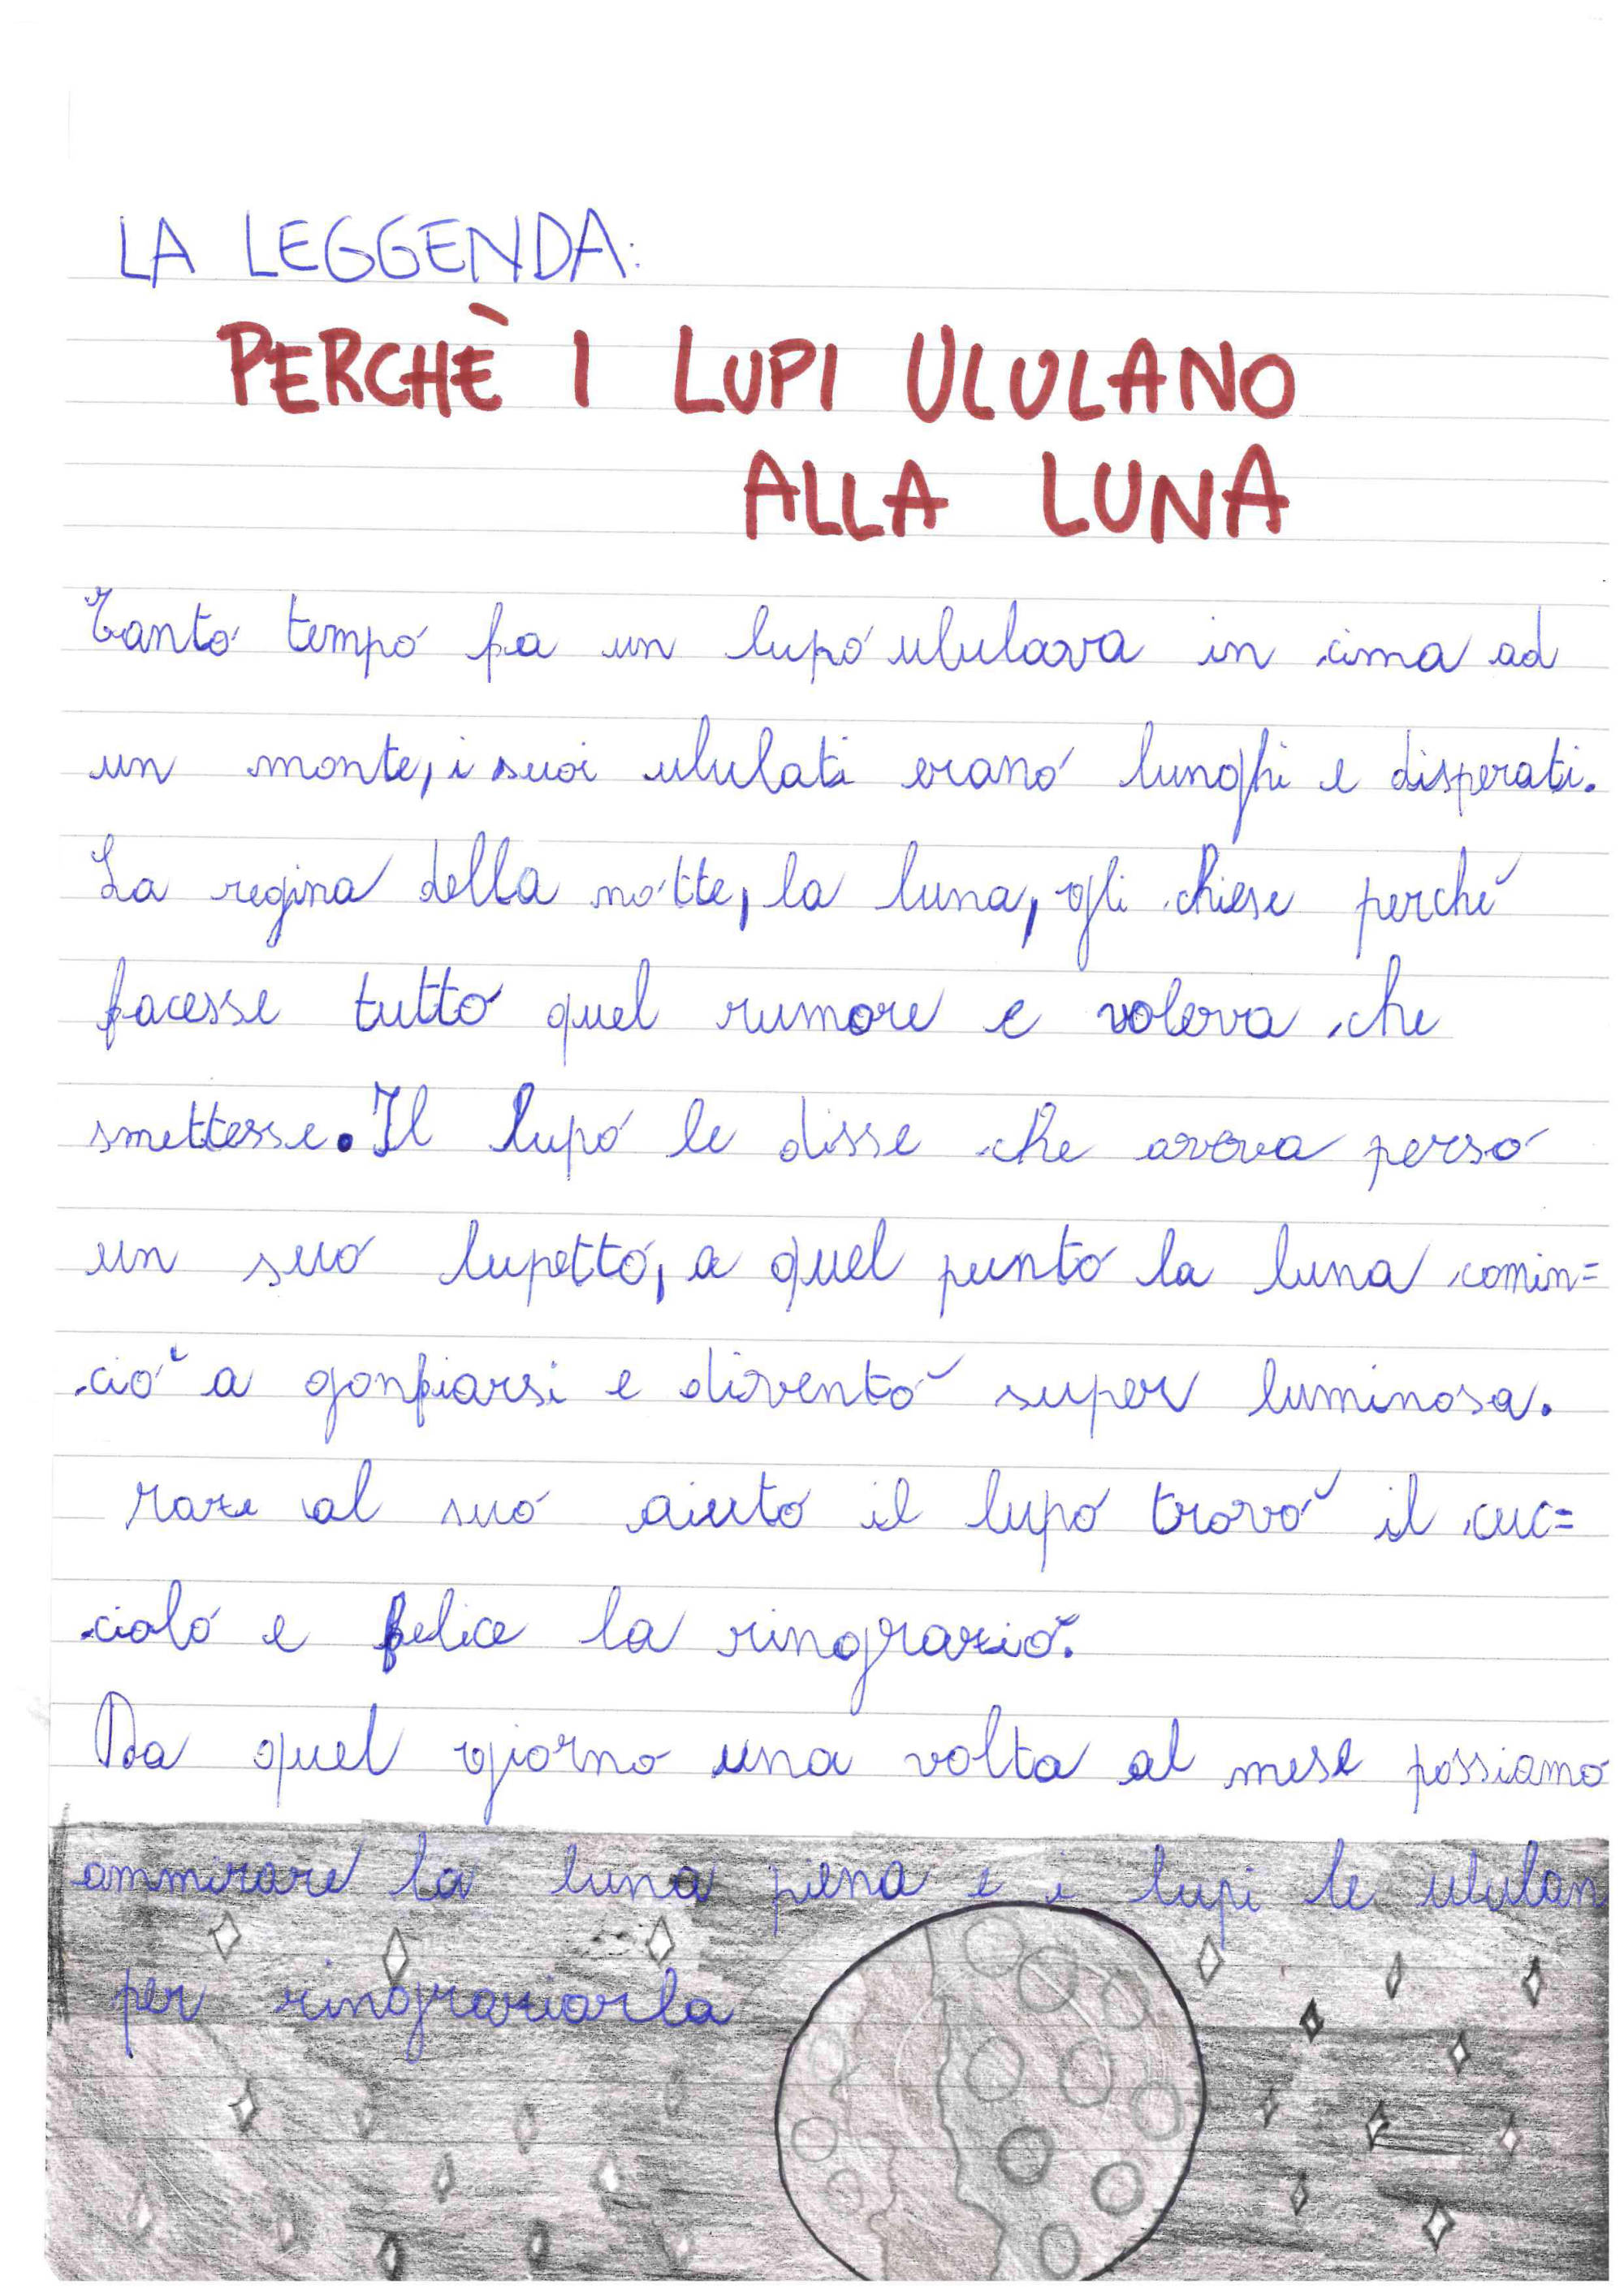 LA LEGGENDA:
PERCHÈ I LUPI ULULANO
ALLA LUNA
Tanto tempo fa un lupo ululava in cima ad
un monte, i suoi ululati erano lunghi e disperati.
La regina della notte, la luna, gli chiese perché
facesse tutto quel rumore e voleva che
smettesse. Il lupo le disse che aveva perso
un suo lupetto, a quel punto la luna comin=
ciò a gonfiarsi e diventò super luminosa.
al suo aiuto il lupo trovò il cuc=
ciolo e felice la ringraziò.
Da quel giorno una volta al mese possiamo
ammirare la luna piena e i lupi le ululan
per ringraziarla